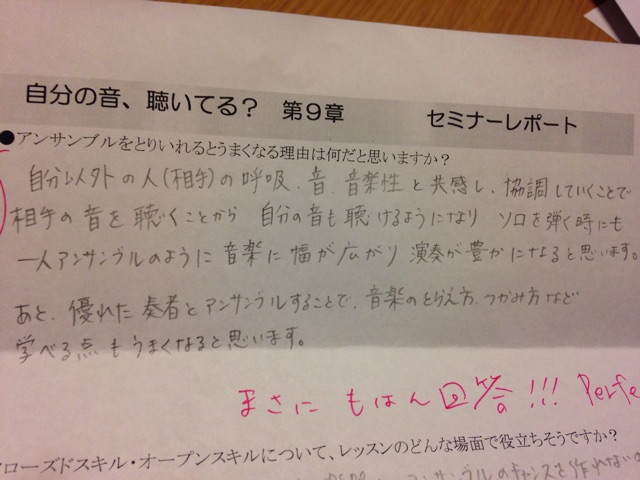 自分の音、聴いてる? 第9章 セミナーレポート
●アンサンブルをとりいれるとうまくなる理由は何だと思いますか?
自分以外の人(相手)の呼吸、音、音楽性と共感し、協調していくことで
相手の音を聴くことから 自分の音も聴けるようになり ソロを弾く時にも
一人アンサンブルのように音楽に幅が広がり 演奏が豊かになると思います。
あと、優れた奏者とアンサンブルすることで、音楽のとらえ方、つかみ方など
学べる点もうまくなると思います。
まさに もはん回答!!! Perfe
ローズドスキル・オープンスキルについて、レッスンのどんな場面で役立ちそうですか?
アンサンブルのチャンスを作れない